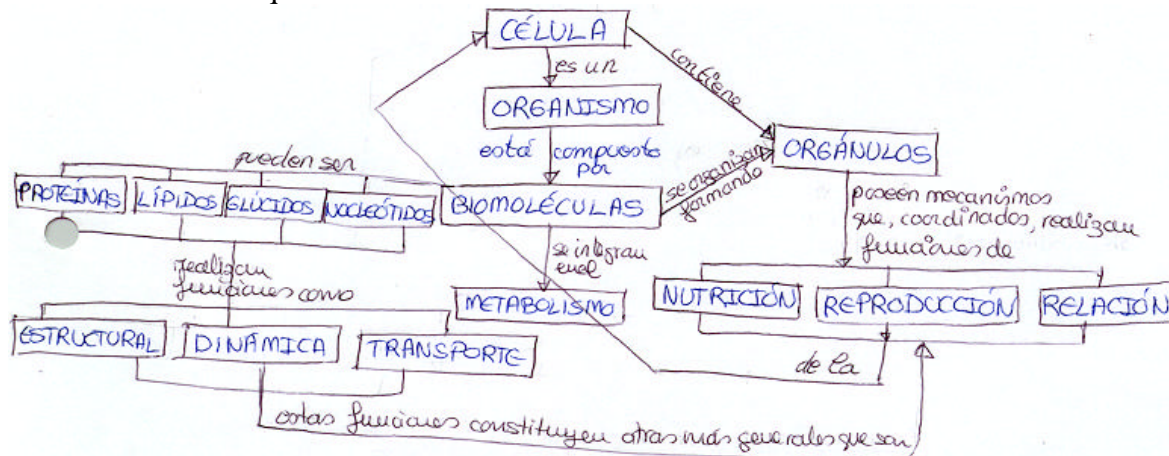 CÉLULA
es un
contiene
ORGANISMO
está compuesto
por
ORGÁNULOS
pueden ser
se organizan
formando
PROTEÍNAS LÍPIDOS GLÚCIDOS NUCLEÓTIDOS BIOMOLÉCULAS
poseen mecanismos
que, coordinados, realizan
funciones de
se integran
en el
realizan
funciones como
METABOLISMO
NUTRICIÓN REPRODUCCIÓN RELACIÓN
ESTRUCTURAL DINÁMICA TRANSPORTE
de la
estas funciones constituyen otras más generales que son